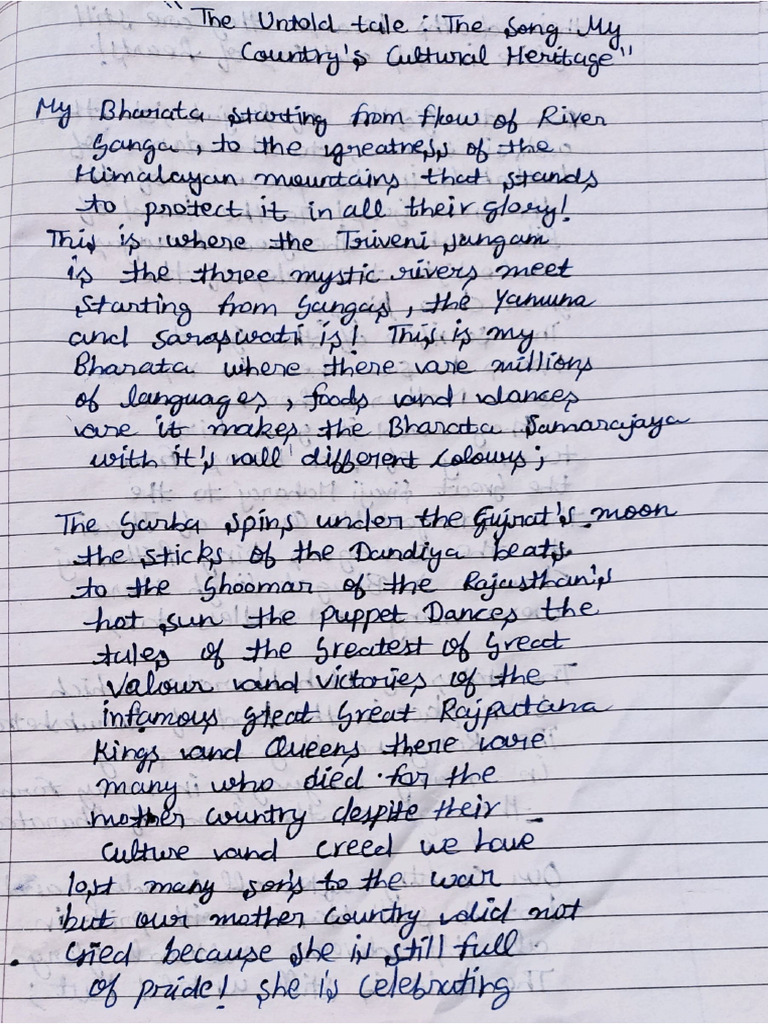 "The Untold tale : The Song My
Country's Cultural Heritage"
My Bharata starting from flow of River
Ganga, to the greatness of the
Himalayan mountains that stands
to protect it in all their glory!
This is where the Triveni sangam
is the three mystic rivers meet
starting from Gangas, the Yamuna
and Saraswati is! This is my
Bharata where there are millions
of languages, foods and dances
are it makes the Bharata Samarajaya
with it's all different colours;
The Garba spins under the Gujrat's moon
the sticks of the Dandiya beats
to the Ghoomar of the Rajasthan's
hot sun the puppet Dances the
tales of the Greatest of Great
valour and victories of the
infamous great Great Rajputana
Kings and Queens there are
many who died for the
mother country despite their
culture and creed we have
lost many son's to the war
but our mother country did not
cried because she is still full
of pride! she is celebrating